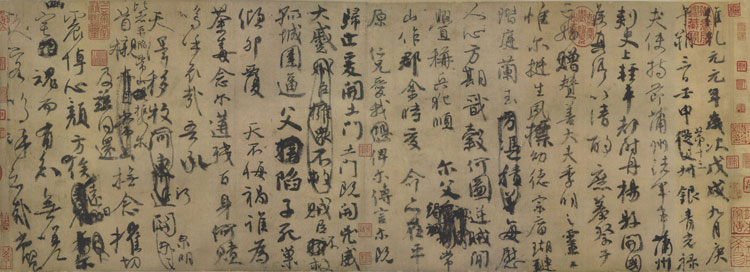 維乾元元年歲次戊戌九月庚
午朔三日壬申第十三叔從父銀青光祿
夫使持節蒲州諸軍事蒲州
刺史上輕車都尉丹楊縣開國
侯真卿以清酌庶羞祭于
亡姪贈贊善大夫季明之靈曰
惟爾挺生夙標幼德宗廟瑚璉
階庭蘭玉每慰
人心方期戩穀何圖逆賊閒
釁稱兵犯順爾父竭誠常
山作郡余時受命亦在平
原仁兄愛我俾爾傳言爾既
歸止爰開土門土門既開凶威
大蹙賊臣不救
孤城圍逼父陷子死巢
傾卵覆天不悔禍誰為
荼毒念爾遘殘百身何贖
嗚呼哀哉吾承
天澤移牧河關泉明
比者再陷常山攜爾
首櫬及茲同還撫念摧切
震悼心顏方俟遠日
爾幽宅魂而有知無嗟
久客嗚呼哀哉尚饗